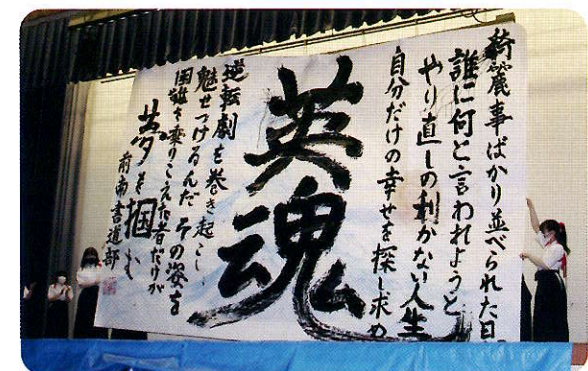 綺麗事ばかり並べられた日
誰に何と言われようと
やり直しの利かない人生
自分だけの幸せを探し求め
英魂
逆転劇を巻き起こし、
魅せつけるんだ その姿を
困難を乗りこえた者だけが
夢を掴む
前南書道部